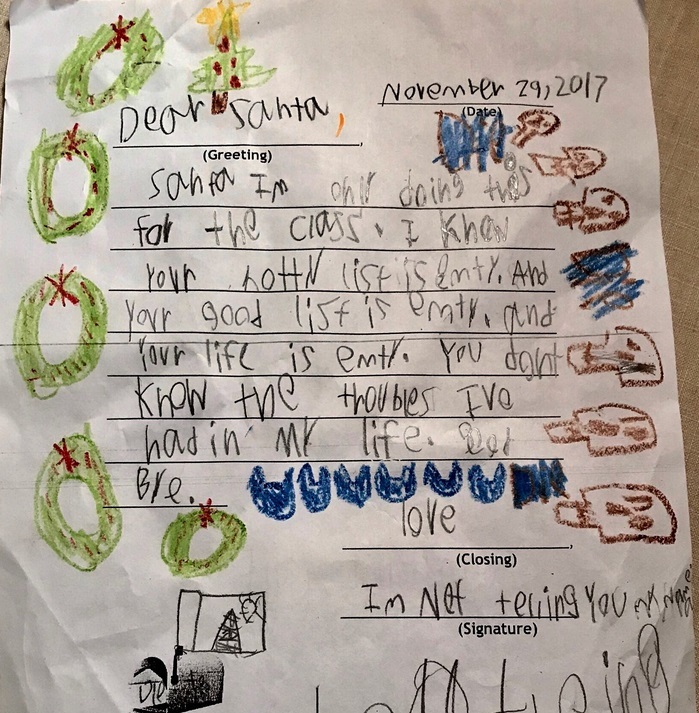 November 29, 2017
(Date)
Dear Santa,
(Greeting)
Santa Im only doing this
for the class. I Know
Your notty list is emty. And
Your good list is emty. and
Your life is emty. You dont
Know the troubles Ive
had in my life. Good
Bye.
love
(Closing)
Im Not telling You my name
(Signature)